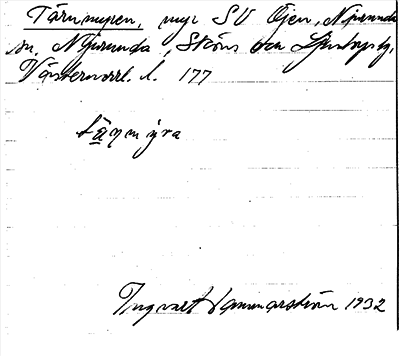 Tärnmyren, myr SV Öjen, Njurunda
sn. Njurunda, Sköns och Ljustorps tg.
Västernorrl. l. 177
Ingvart Hammarström 1932